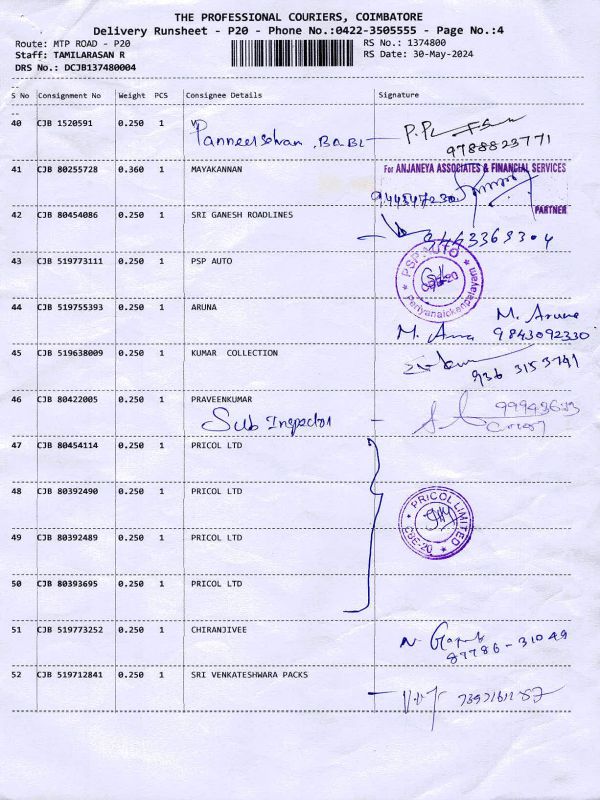 THE PROFESSIONAL COURIERS, COIMBATORE
Delivery Runsheet - P20 - Phone No.:0422-3505555 - Page No.:4
Route: MTP ROAD - P20
RS No.: 1374800
Staff: TAMILARASAN R
RS Date: 30-May-2024
DRS No.: DCJB137480004
S No Consignment No Weight PCS Consignee Details Signature
40 CJB 1520591 0.250 1 V
Panneerselvam .BABL
9788823771
41 CJB 80255728 0.360 1 MAYAKANNAN
For ANJANEYA ASSOCIATES & FINANCIAL SERVICES
PARTNER
42 CJB 80454086 0.250 1 SRI GANESH ROADLINES
9443369304
43 CJB 519773111 0.250 1 PSP AUTO
PSP AUTO
Periyanaickenpalayam
44 CJB 519755393 0.250 1 ARUNA
M. Aruna
M. Aruna 9843092330
45 CJB 519638009 0.250 1 KUMAR COLLECTION
936 3153741
46 CJB 80422005 0.250 1 PRAVEENKUMAR
Sub Inspector
47 CJB 80454114 0.250 1 PRICOL LTD
48 CJB 80392490 0.250 1 PRICOL LTD
PRICOL LIMITED
CBE-20
49 CJB 80392489 0.250 1 PRICOL LTD
50 CJB 80393695 0.250 1 PRICOL LTD
51 CJB 519773252 0.250 1 CHIRANJIVEE
87786-31049
52 CJB 519712841 0.250 1 SRI VENKATESHWARA PACKS